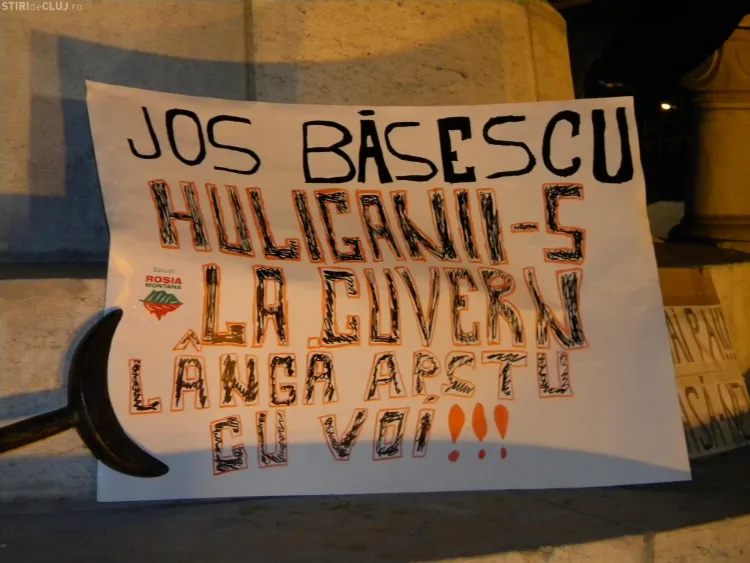 STIRIdeCLUJ.ro
JOS BĂSESCU
HULIGANII-S
LA GUVERN
LÂNGA APSTU
CU VOI!!!
Salvați
ROSIA
MONTANA